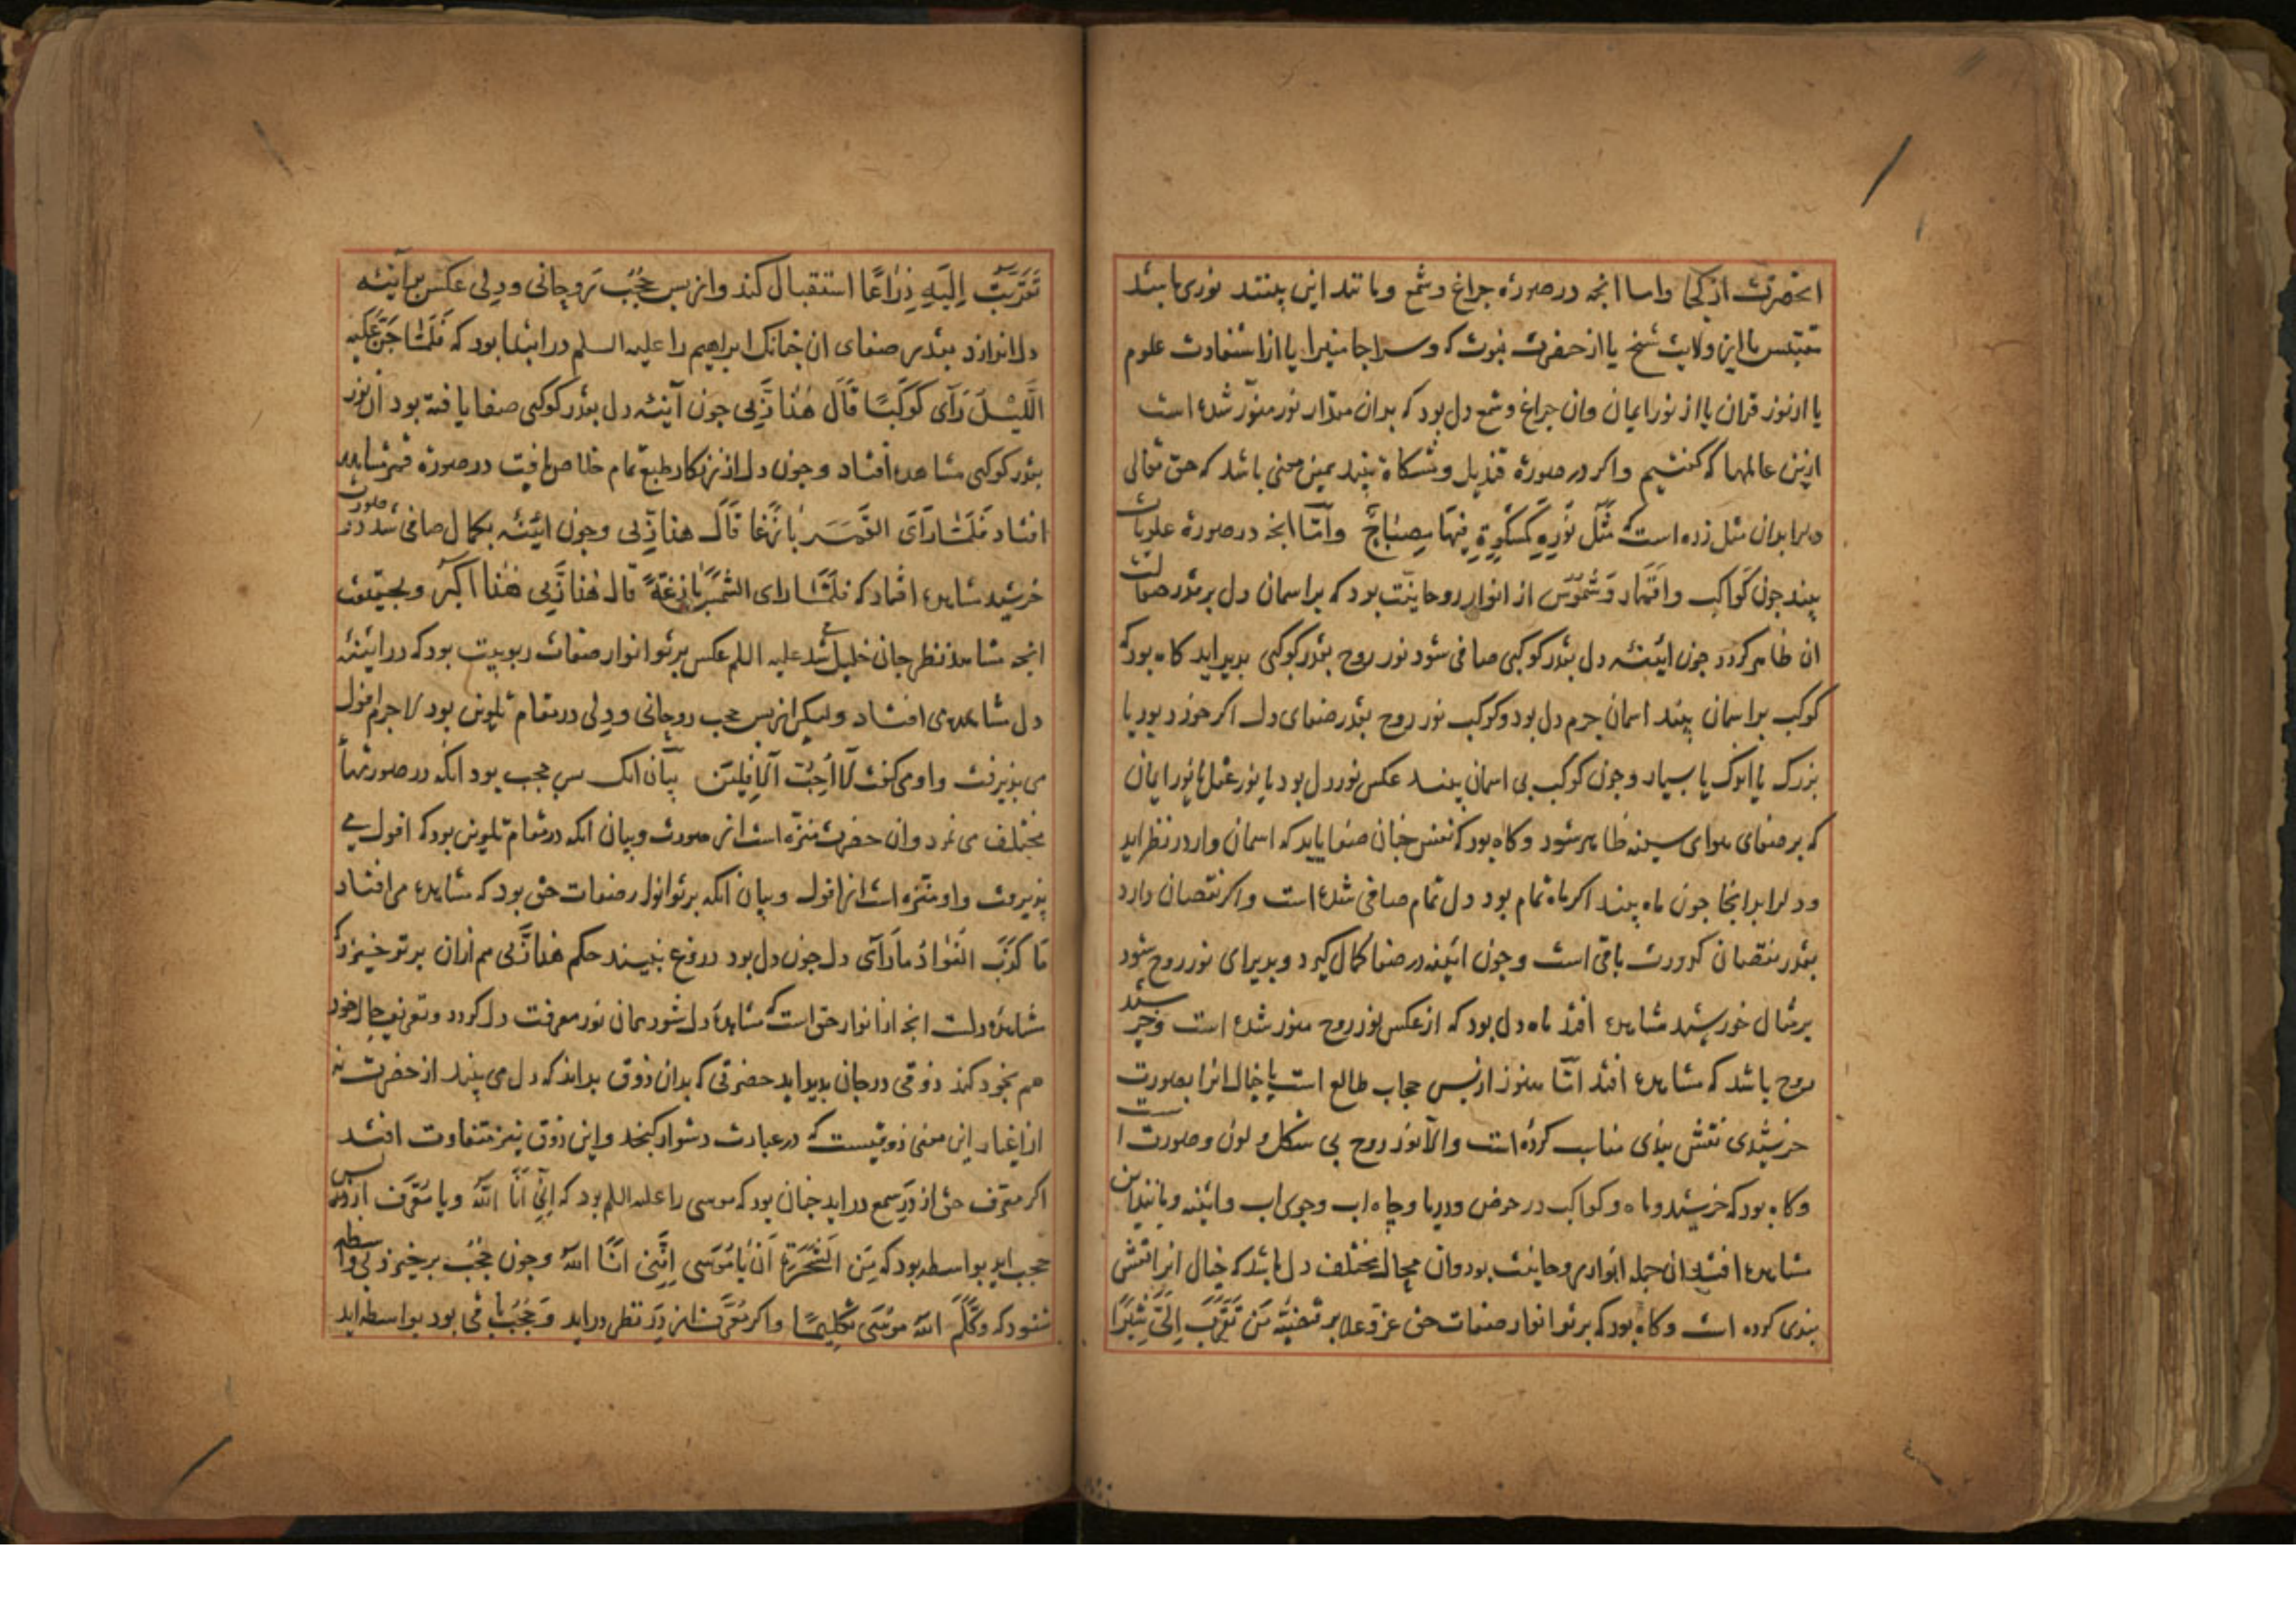 انحضرت از کجا واما انچه در صورة چراغ وشمع ومانند این بینند نوری باشد
مقتبس یا از ولایت شیخ یا از حضرت نبوت که وسراجا منیرا یا از استفادت علوم
یا از نور قران یا از نور ایمان وان چراغ وشمع دل بود که بدان مقدار نور منوّر شده است
ازین عالمها که گفتیم واکر در صورة قندیل ومشکاة بیند همین معنی باشد که حق تعالی
دلرا بدان مثل زده است که مَثَل نُورِهِ کَمِشکوةٍ فِیهَا مِصبَاحٌ وامّا انچه در صورة علویات
بیند چون کَواکب واَقمَار وَشُمُوس از انوار روحانیّت بود که بر اسمان دل بر قدر صقالت
ان ظاهر کردد چون ایئنه دل بقدر کوکبی صافی شود نور روح بقدر کوکبی بدید اید کاه بود که
کوکب بر اسمان بیند اسمان جرم دل بود وکوکب نور روح بقدر صفای دل اکر خرد بود یا
بزرک یا اندک یا بسیار وچون کوکب بی اسمان بیند عکس نور دل بود یا نور عقل یا نور ایمان
که بر صفای هوای سینه ظاهر شود وکاه بود که نفس چنان صفا یابد که اسمان وار در نظر اید
ودلرا بر انجا چون ماه بیند اکر ماه تمام بود دل تمام صافی شده است واکر نقصان دارد
بقدر نقصان کدورت باقی است وچون ائینه در صفا کمال کیرد وبدیرای نور روح شود
بر مثال خورشید مشاهده افتد ماه دل بود که از عکس نور روح منور شده است وخرشید
روح باشد که مشاهده افتد امّا هنوز از بس حجاب طالع است یا خیال انرا بصورت
خرشیدی نقش بندی مناسب کرده است والّا نور روح بی شکل ولون وصورت است
وکاه بود که خرشید وماه وکواکب در حوض ودریا وچاه اب وجوی اب وائینه ومانند این
مشاهده افتد ان جمله انوار روحانیت بود وان محال مختلف دل باشد که خیال انرا نقش
بندی کرده است وکاه بود که برتو انوار صفات حق عز وعلا بر قضیّه مَن تَقَرَّبَ اِلَیَّ شِبرًا
تَقَرَّبتُ اِلَیهِ ذِرَاعًا استقبال کند واز بس حُجُب رَوحانی ودلی عکس بر آینه
دل اندازد بقدر صفای ان چنانک ابراهیم را علیه السلم در ابتدا بود که فَلَمّا جَنَّ عَلَیهِ
اللَّیلُ رَآی کَوکَبًا قَالَ هٰذا رَبِّی چون آینه دل بقدر کوکبی صفا یافته بود ان نور
بقدر کوکبی مشاهده افتاد وچون دل از زنکار طبع تمام خلاص یافت در صورة قمر مشاهده
افتاد فَلَمّا رَآیَ القَمَرَ بازِغًا قَالَ هذا رَبّی وچون ائینه بکمال صافی شد در صورت
خرشید مشاهده افتاد که فلَمّا رای الشَّمسَ بازِغَةً قال هٰذا رَبّی هٰذا اَکبَر وبحقیقت
انچه مشاهد نظر جان خلیل شد علیه السلم عکس برتو انوار صفات ربوبیت بود که در ائینه
دل مشاهده می افتاد ولیکن از بس حجب روحانی ودلی در مقام تلوین بود لاجرم افول
می بذیرفت واو می کفت لَا اُحِبُّ الآفِلِین بیان انک بس حجب بود انکه در صورتها
مختلف می نمود وان حضرت منزّه است از صورت وبیان انکه در مقام تلوین بود که افول می
بذیرفت واو منزّه است از افول وبیان انکه برتو انوار صفات حق بود که مشاهده می افتاد
مَا کَذَبَ الفُؤَادُ مَا رَآی دل چون دل بود دروغ نبیند حکم هذا رَبّی هم ازان برتو خیزد که
مشاهدۀ دلست انچه از انوار حق است که مشاهدۀ دل شود همان نور معرفت دل کردد وتعریف حال خود
هم بخود کند ذوقی در جان بدید اید حضرتی که بدان ذوق بداند که دل می بیند از حضرت نه
از اغیار این معنی ذوقیست که در عبارت دشوار کنجد واین ذوق نیز متفاوت افتد
اکر معرّف حق از دَرِ سمع در اید چنان بود که موسی را علیه السلم بود که اِنّی اَنَا اللّٰه ویا مُعَرّف از بس
حجب اید بواسطه بود که مِنَ الشَّجَرَةِ اَن یَا مُوسَی اِنَّنِی اَنَا اللّٰه وچون حُجُب برخیزد بی واسطه
شنود که وَکَلَّمَ اللّٰه مُوسَی تَکلِیمًا واکر مُعَرّف از دَرِ نظر در اید وَحُجُب باقی بود بواسطه اید